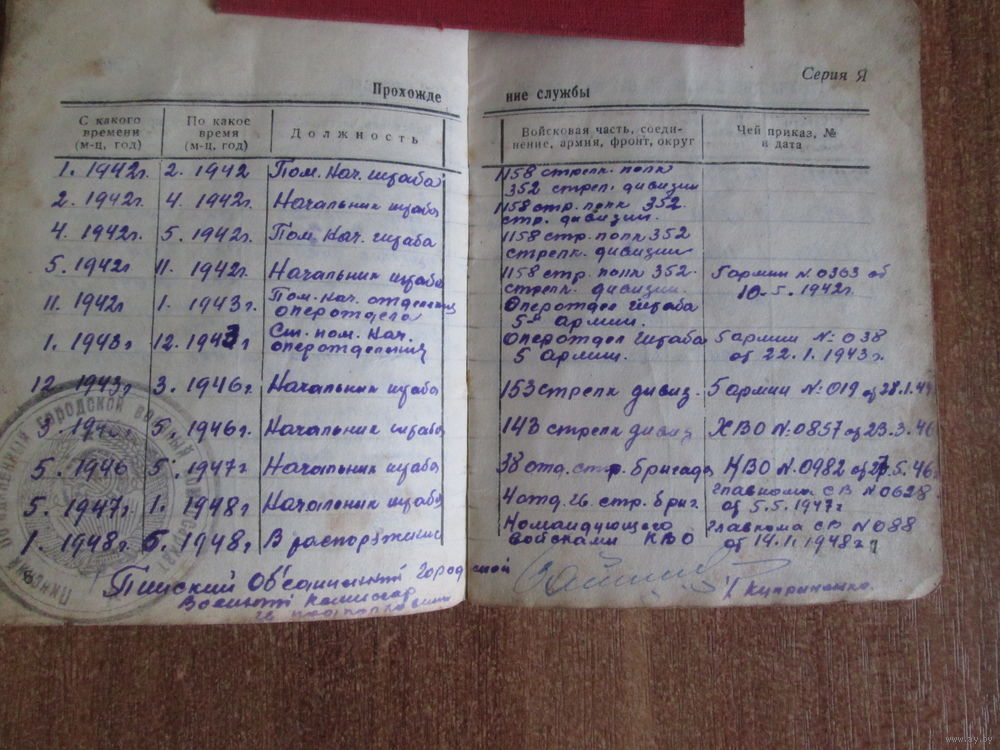 Серия Я
Прохождение службы
С какого времени (м-ц, год)
По какое время (м-ц, год)
Должность
Войсковая часть, соеди-
нение, армия, фронт, округ
Чей приказ, №
и дата
1. 1942г. 2. 1942 Пом. Нач. штаба 1158 стрелк. полк
352 стрел. дивизии
2. 1942г. 4. 1942г. Начальник штаба 1158 стр. полк 352
стр. дивизии.
4. 1942г. 5. 1942г. Пом. Нач. штаба 1158 стр. полк 352
стрелк. дивизии
5. 1942г 11. 1942г Начальник штаба 1158 стр. полк 352. 5 армии №. 0363 об
стрелк. дивизии. 10.5. 1942г.
11. 1942г 1. 1943г. Пом. Нач. отделения Оперотдел штаба
оперотдела 5й армии.
1. 1943г 12. 1943г Ст. пом. Нач. Оперотдел Штаба 5 армии № 038
оперотделения 5 армии. от 22.1.1943г.
12 1943г 3. 1946г. Начальник штаба 153 стрелк дивиз. 5 армии № 019 от 28.1.44
3. 5. 1946г. Начальник штаба 143 стрелк дивиз ХВО №0857 от 23.3.46
5. 1946 5. 1947г Начальник штаба 38 отд. стр. бригада КВО №.0982 от 27.5.46.
5. 1947г. 1. 1948г Начальник штаба 4 отд. гв. стр. бриг. Главкома СВ №0628
от 5.5.1947г
1. 1948г. 6. 1948г В распоряжение Командующего Главкома СВ №088
войсками КВО от 14.11.1948г.
Пинский Объединенный Городской
Военный Комиссар
подполковник
/Куприненко.
www.ay.by